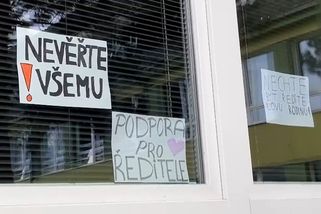 NEVĚŘTE
! VŠEMU
PODPORA
PRO
ŘEDITELE
NECHTE
ŘEDITE
RODINU